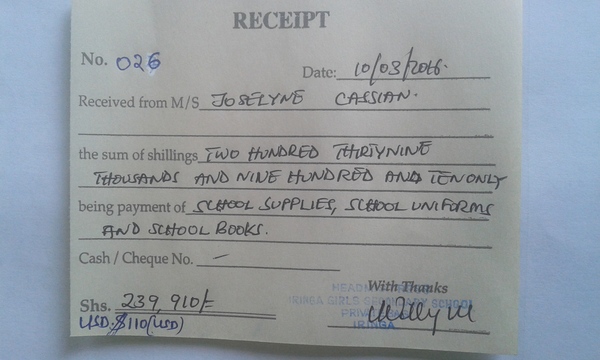 RECEIPT
No. 026
Date: 10/03/2016.
Received from M/S JOSELYNE CASSIAN.
the sum of shillings TWO HUNDRED THIRTYNINE
THOUSANDS AND NINE HUNDRED AND TEN ONLY
being payment of SCHOOL SUPPLIES, SCHOOL UNIFORMS
AND SCHOOL BOOKS.
Cash / Cheque No. —
With Thanks
IRINGA GIRLS SECONDARY SCHOOL
IRINGA
Shs. 239,910/=
USD. $110(USD)